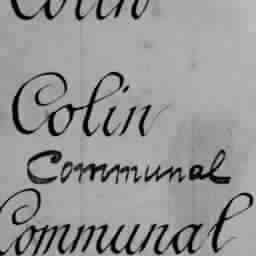 Colin
Colin
Communal
Communal